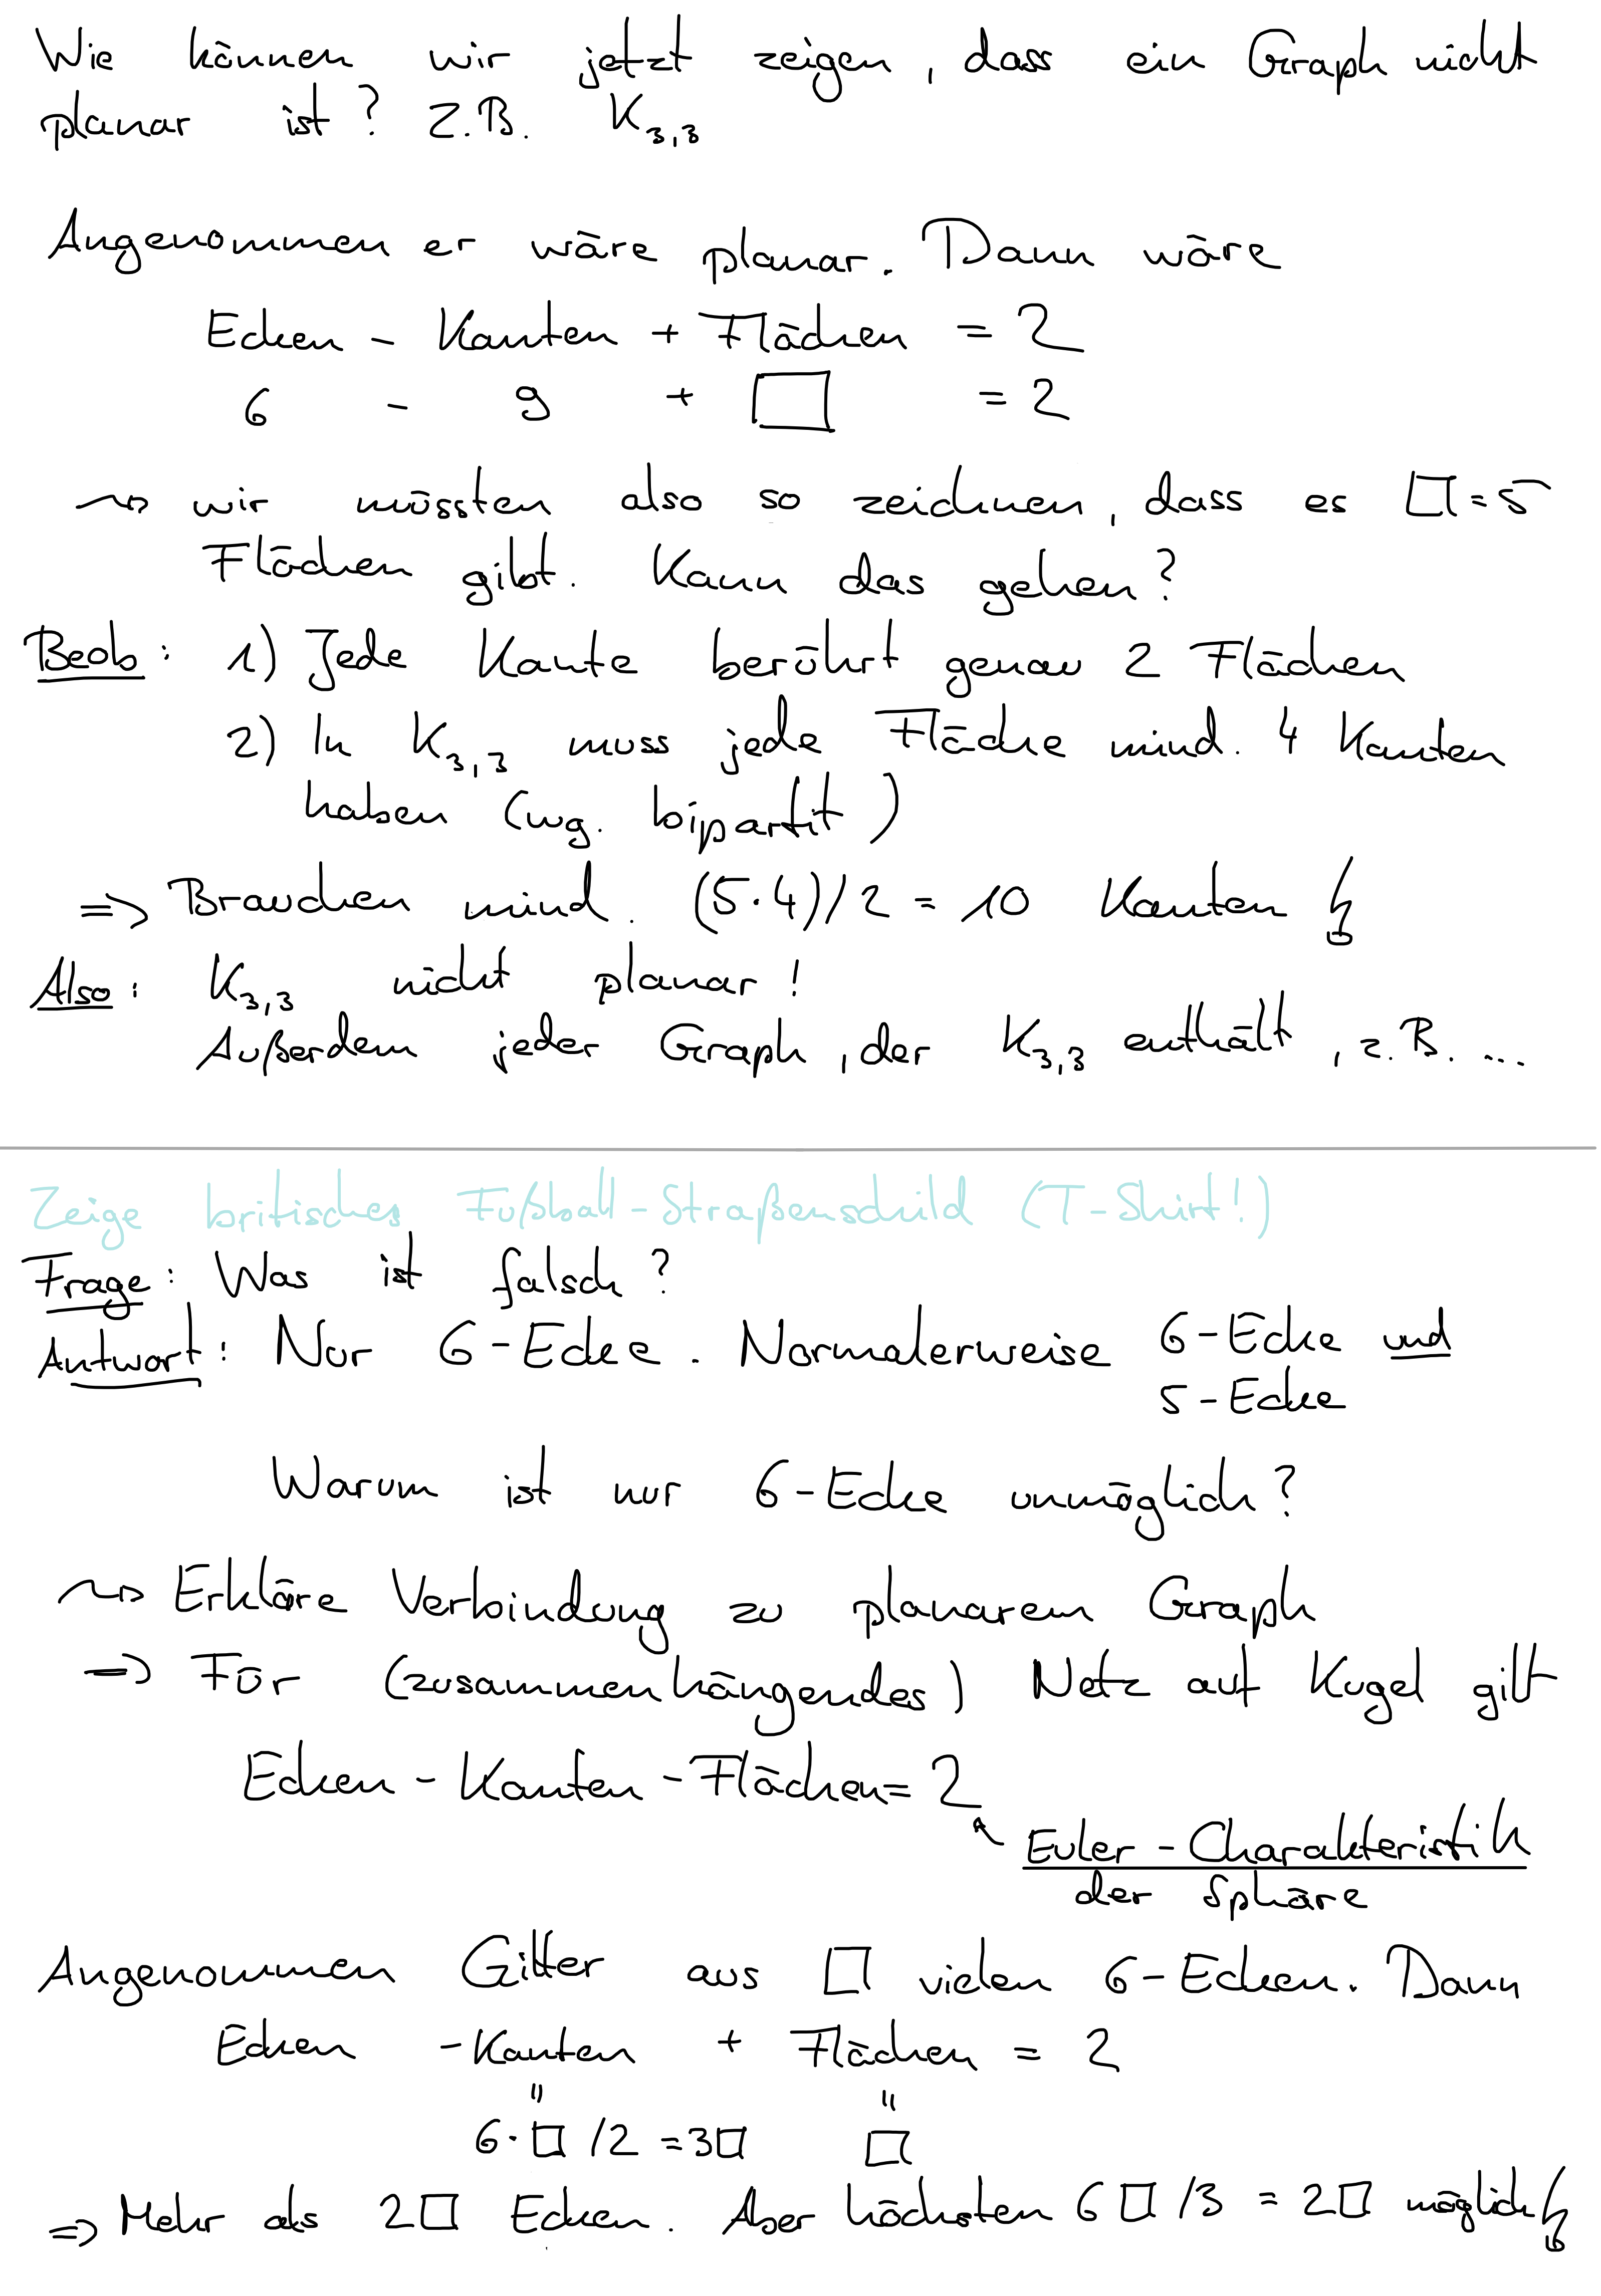 Wie können wir jetzt zeigen, dass ein Graph nicht
planar ist? Z.B. K3,3
Angenommen er wäre planar. Dann wäre
Ecken - Kanten + Flächen = 2
6 - 9 + □ = 2
⇝ wir müssten also so zeichnen, dass es □=5
Flächen gibt. Kann das gehen?
Beob: 1) Jede Kante berührt genau 2 Flächen
2) In K3,3 muss jede Fläche mind. 4 Kanten
haben (wg. bipartit)
=> Brauchen mind. (5·4)/2 = 10 Kanten ↯
Also: K3,3 nicht planar!
Außerdem jeder Graph, der K3,3 enthält, z.B. ...
Zeige britisches Fußball-Straßenschild (T-Shirt!)
Frage: Was ist falsch?
Antwort: Nur 6-Ecke. Normalerweise 6-Ecke und
5-Ecke
Warum ist nur 6-Ecke unmöglich?
⇝ Erkläre Verbindung zu planarem Graph
=> Für (zusammenhängendes) Netz auf Kugel gilt
Ecken - Kanten - Flächen = 2
Euler-Charakteristik
der Sphäre
Angenommen Gitter aus □ vielen 6-Ecken. Dann
Ecken - Kanten + Flächen = 2
" "
6·□/2 = 3□ □
=> Mehr als 2□ Ecken. Aber höchsten 6□/3 = 2□ möglich ↯